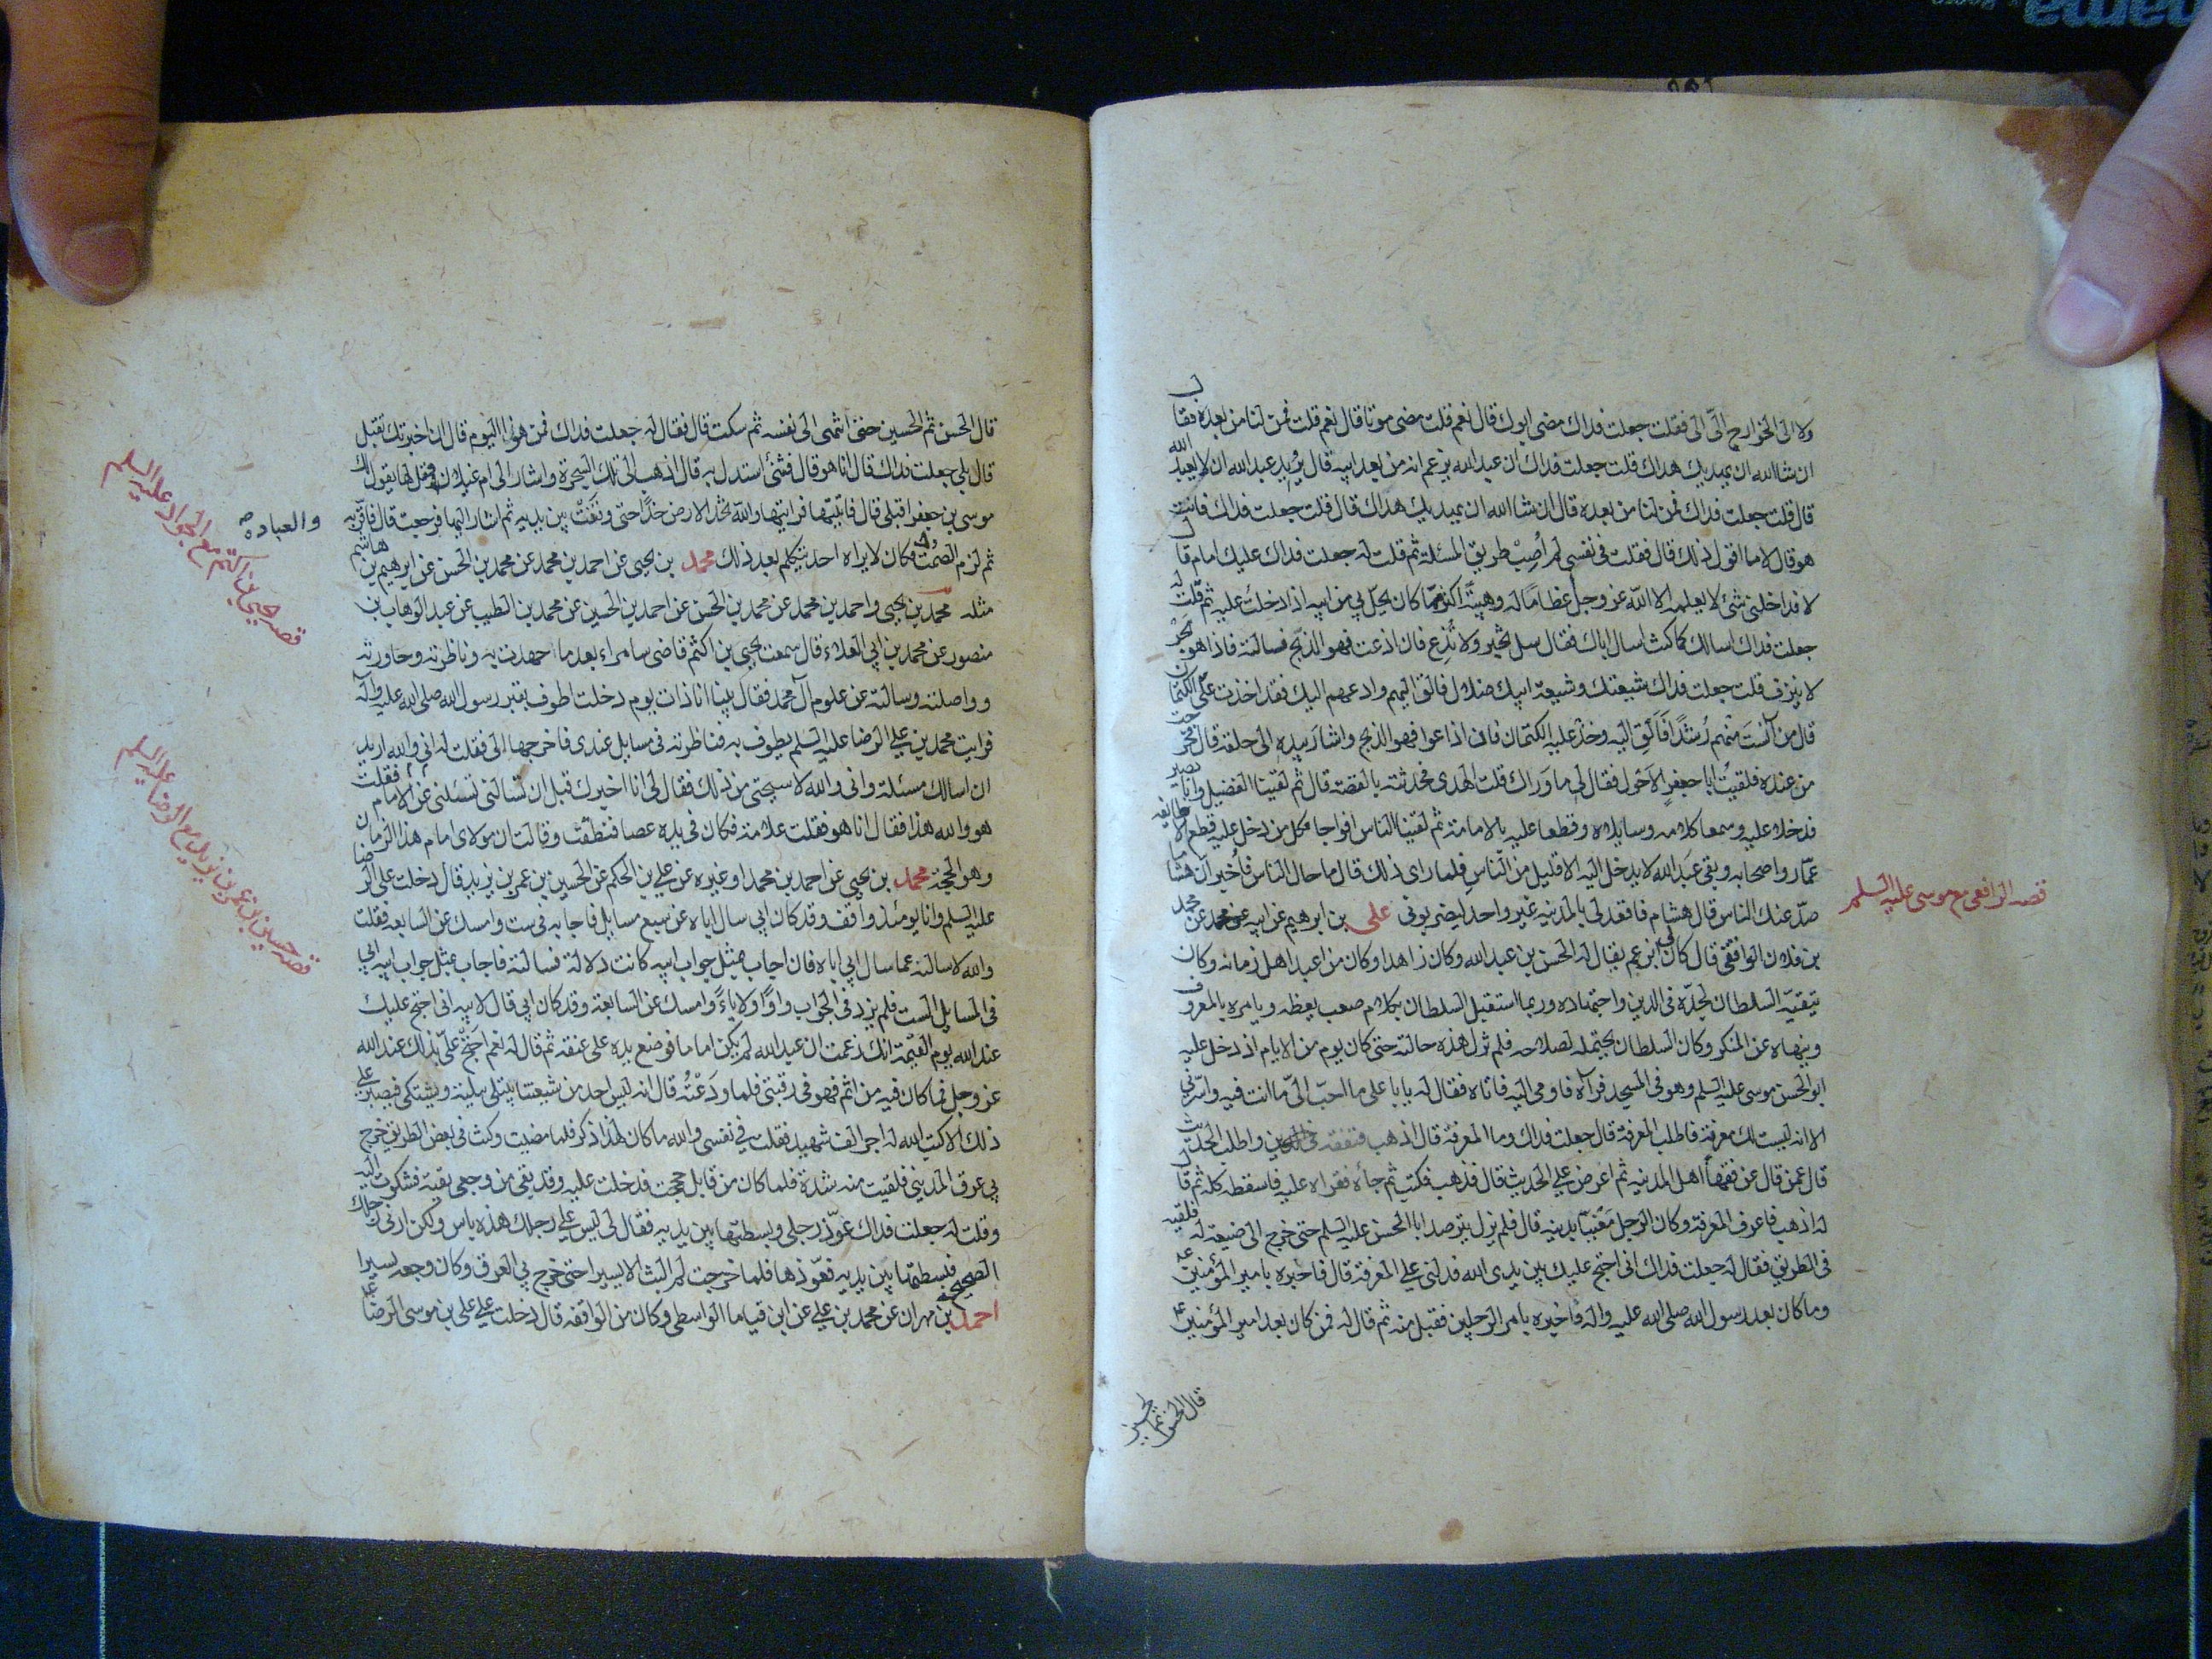 ولا الى الخوارج الّى الى فقلت جعلت فداك مضى ابوك قال نعم قلت مضى موتا قال نعم قلت فمن لنا من بعده فقال
ان شا الله ان يهديك هداك قلت جعلت فداك ان عبد الله يزعم انه من بعد ابيه قال يُريد عبد الله ان لا يعبد الله
قال قلت جعلت فداك فمن لنا من بعده قال ان شا الله ان يهديك هداك قال قلت جعلت فداك فانت
هو قال لا ما اقول ذلك قال فقلت في نفسي لم اُصِبْ طريق المسئلة ثم قلت له جعلت فداك عليك امام قال
لا فداخلني شئ لا يعلمه الا الله عز وجل عظاما له وهيبتًه اكثر مما كان يحلّ بي من ابيه اذا دخلت عليه ثم قلت له
جعلت فداك اسالك كما كنت اسال اباك فقال سل تخبر ولا تُذِع فان اذعت فهو الذبح فسالته فاذا هو بحر
لا ينزف قلت جعلت فداك شيعتك وشيعة ابيك ضلال فالق اليهم وادعهم اليك فقد اخذت علىّ الكتمان
قال من آنَستَ منهم رُشدًا فَاَلْقِ اليه وخذ عليه الكتمان فان اذاعوا فهو الذبح واشار بيده الى حلقه قال فخرجت
من عنده فلقيتُ ابا جعفر الاَحْول فقال لي ما وَراك قلت الهدى فحدثته بالقصة قال ثم لقينا الفضيل وابا بصير
فدخلا عليه وسمعا كلامه وسايلاه وقطعا عليه بالامامة ثم لقينا الناس افواجا فكل من دخل عليه قطع الا طايفه
عمّار واصحابه وبقي عبد الله لا يدخل اليه الا قليل من النّاس فلما راى ذلك قال ما حال الناس فاُخبر اَن هشاما
صدّ عنك الناس قال هشام فاقعد لي بالمدينه غير واحد ليضربوني على بن ابرهيم عن ابيه عن محمد عن محمد
بن فلان الواقفي قال كان لي ابن عم يقال له الحسن بن عبد الله وكان زاهدا وكان من اعبد اهل زمانه وكان
يتّقيه السلطان لجدّه في الدين واجتهاده وربما استقبل السلطان بكلام صعب يعظه ويامره بالمعروف
وينهاه عن المنكر وكان السلطان يحتمله لصلاحه فلم تزل هذه حالته حتى كان يوم من الايام اذ دخل عليه
ابو الحسن موسى عليه السلم وهو في المسجد فرآه فاومى اليه فاتاه فقال له يا با علي ما احبّ الىّ ما انت فيه واسّرني
الا انه ليست لك معرفة فاطلب المعرفة قال جعلت فداك وما المعرفة قال اذهب فتفقه واطلب الحديث
قال عمن قال عن فقهاٌ اهل المدينه ثم اعرض علي الحديث قال فذهب فكتب ثم جاٌه فقراه عليه فاسقطه كله ثم قال
له اذهب فاعرف المعرفة وكان الرجل مَعْنيّاً بدينه قال فلم يزل يترصد ابا الحسن عليه السلم حتى خرج الى ضيعة له فلقيه
في الطريق فقال له جعلت فداك اني احتج عليك بين يدى الله فدلني علي المعرفة قال فاخبره بامير المؤمنين عم
وما كان بعد رسول الله صلى الله عليه واله فاخبره بامر الرجلين فقبل منه ثم قال له فمن كان بعد امير المؤمنين عم
قال الحسن ثم الحسين
قصه الرافعي مع موسى عليه السلم
قال الحسن ثم الحسين حتى انتهى الى نفسه ثم سكت قال فقال له جعلت فداك فمن هو اليوم قال ان اخبرتك تقبل
قال بلى جعلت فداك قال انا هو قال فشئ استدل به قال اذهب الى تلك الشجرة واشار الى ام غيلان وقل لها يقول لك
موسى بن جعفر اقبلى قال فاتيتها فرايتها والله تخدّ الارض خدًّا حتى وقفتْ بين يديه ثم اشار اليها فرجعت قال فاقرّ به
ثم لزم الصُّمت والعبادة فكان لا يراه احد يتكلم بعد ذلك محمد بن يحيى عن احمد بن محمد عن محمد بن الحسن عن ابرهيم بن هاشم
مثله محمد بن يحيى واحمد بن محمد عن محمد بن الحسن عن احمد بن الحسين عن محمد بن الطيب عن عبد الوهاب بن
منصور عن محمد بن ابي العلاء قال سمعت يحيى بن اكثم قاضى سامراء بعد ما جهدت به وناظرته وحاورته
وواصلته وسالته عن علوم آل محمد فقال بينا انا ذات يوم دخلت اطوف بقبر رسول الله صلى الله عليه وآله
فرايت محمد بن علي الرضا عليه السلم يطوف به فناظرته في مسايل عندى فاخرجها الى فقلت له اني والله اريد
ان اسالك مسئلة واني والله لاستحي من ذلك فقال لي انا اخبرك قبل ان تسالني تسئلني عن الامام فقلت
هو والله هذا فقال انا هو فقلت علامة فكان في يده عصا فنطقت وقالت ان مولاى امام هذا الزمان
وهو الحجة محمد بن يحيى عن احمد بن محمد او غيره عن علي بن الحكم عن الحسين بن عمر بن يزيد قال دخلت على الرضا
عليه السلم وانا يومئذ واقف وقد كان ابي سال اباه عن سبع مسايل فاجابه في ست وامسك عن السابعه فقلت
والله لاسالنه عما سال ابي اباه فان اجاب بمثل جواب ابيه كانت دلالة فسالته فاجاب بمثل جواب ابيه ابي
في المسايل الست فلم يزد في الجواب واوًا ولا ياءً وامسك عن السابعة وقد كان ابي قال لابيه اني احتج عليك
عند الله يوم القيمة انك زعمت ان عبد الله لم يكن اماما فوضع يده على عنقه ثم قال له نعم احتجّ علىّ بذلك عند الله
عز وجل فما كان فيه من اثم فهو في رقبتى فلما ودَعْتُه قال انه ليس احد من شيعتنا يبتلى ببلية ويشتكى فيصبر على
ذلك الا كتب الله له اجر الف شهيد فقلت في نفسى والله ما كان لهذا ذكر فلما مضيت وكنت في بعض الطريق خرج
بي عرق المديني فلقيت منه شدة فلما كان من قابل حججت فدخلت عليه وقد بقى من وجعى بقية فشكوت اليه
وقلت له جعلت فداك عوّذ رجلى وبسطتها بين يديه فقال لي ليس علي رجلك هذه باس ولكن ارني رجلك
الصحيحة فبسطتها بين يديه فعوّذها فلما خرجت لم البث الا يسيرا حتى خرج بي العرق وكان وجعه يسيرا
احمد بن مهران عن محمد بن علي عن ابن قياما الواسطى وكان من الواقفه قال دخلت علي على بن موسى الرضا عم
والعبادة صح
قصه يحيى بن اكثم مع الجواد عليه السلم
قصه حسين بن عمر بن يزيد مع الرضا عليه السلم